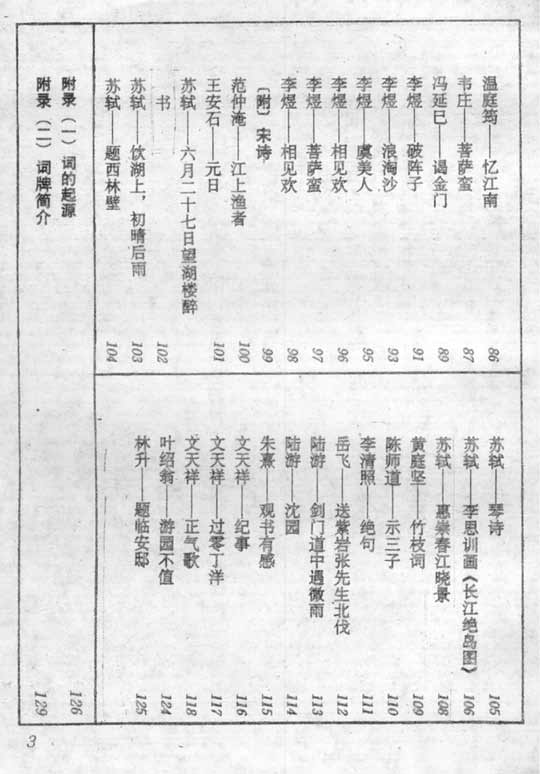 温庭筠——忆江南 86
韦庄——菩萨蛮 87
冯延巳——谒金门 89
李煜——破阵子 91
李煜——浪淘沙 93
李煜——虞美人 95
李煜——相见欢 96
李煜——菩萨蛮 97
李煜——相见欢 98
〔附〕宋诗 99
范仲淹——江上渔者 100
王安石——元日 101
苏轼——六月二十七日望湖楼醉
书 102
苏轼——饮湖上，初晴后雨 103
苏轼——题西林壁 104
苏轼——琴诗 105
苏轼——李思训画《长江绝岛图》 106
苏轼——惠崇春江晓景 108
黄庭坚——竹枝词 109
陈师道——示三子 110
李清照——绝句 111
岳飞——送紫岩张先生北伐 112
陆游——剑门道中遇微雨 113
陆游——沈园 114
朱熹——观书有感 115
文天祥——纪事 116
文天祥——过零丁洋 117
文天祥——正气歌 118
叶绍翁——游园不值 124
林升——题临安邸 125
附录（一）词的起源 126
附录（二）词牌简介 129
3